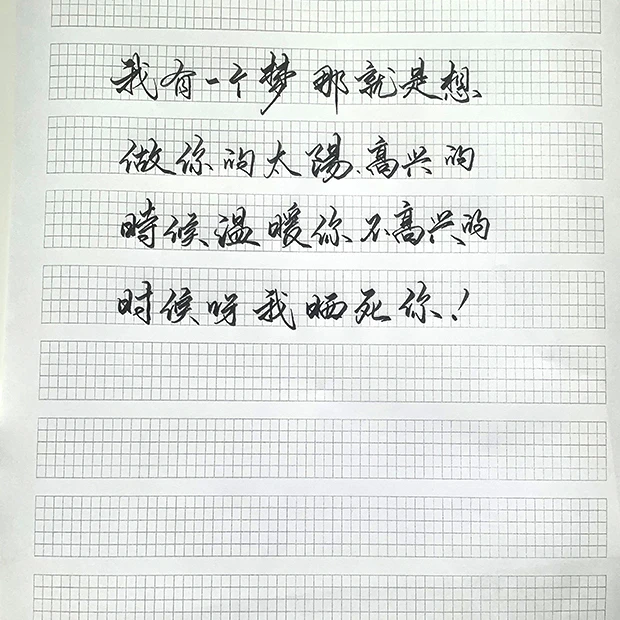 我有一个梦 那就是想、
做你的太陽、高兴的
時候温暖你不高兴的
时候呀我晒死你！